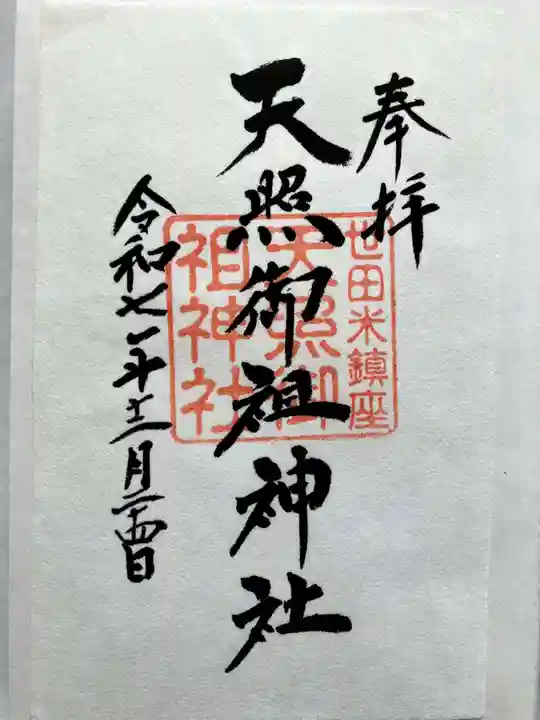 奉拝
世田米鎮座
天照御
祖神社
天照御祖神社
令和七年十二月二十四日